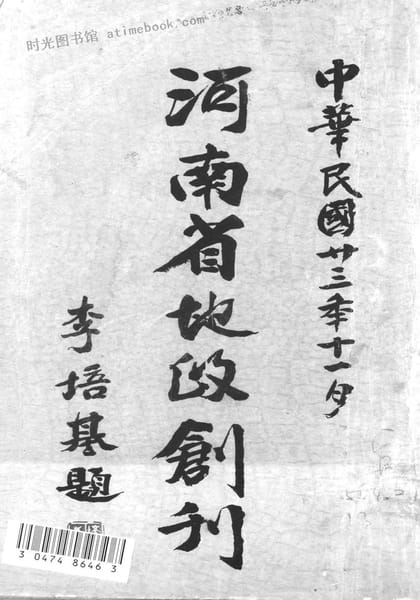 时光图书馆 atimebook.com
中華民國廿三年十一月
河南省地政創刊
李培基題
3 0474 8646 3